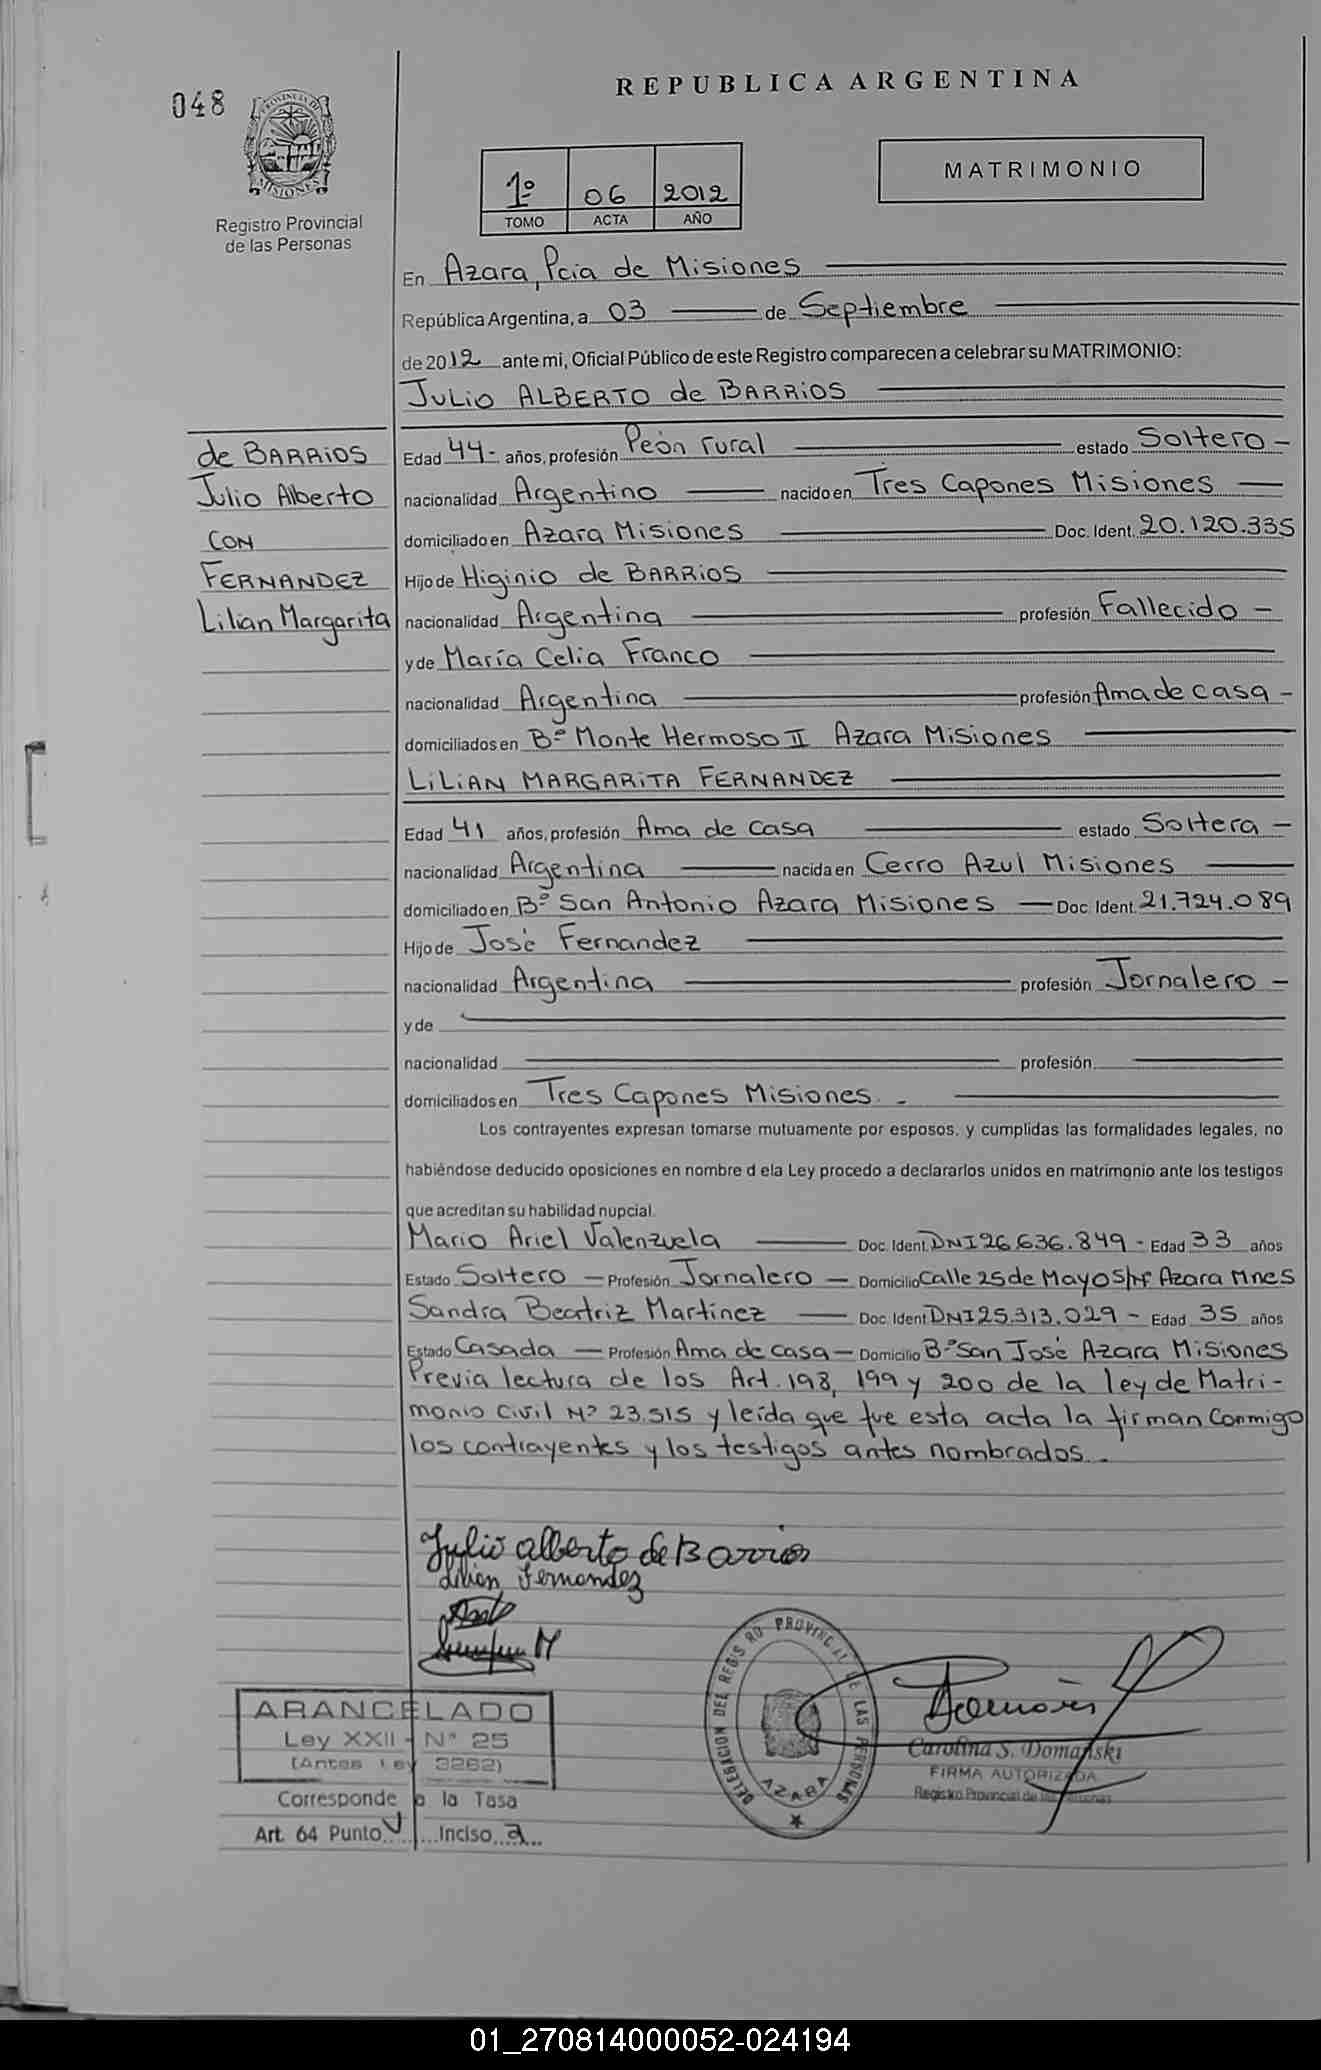 048
PROVINCIA DE
MISIONES
Registro Provincial
de las Personas
REPUBLICA ARGENTINA
1º 06 2012
TOMO ACTA AÑO
MATRIMONIO
En Azara, Pcia de Misiones
República Argentina, a 03 de Septiembre
de 2012 ante mi, Oficial Público de este Registro comparecen a celebrar su MATRIMONIO:
JULIO ALBERTO de BARRIOS
de BARRIOS
Julio Alberto
CON
FERNANDEZ
Lilian Margarita
Edad 44- años, profesión Peón rural estado Soltero -
nacionalidad Argentino nacido en Tres Capones Misiones
domiciliado en Azara Misiones Doc. Ident. 20.120.335
Hijo de Higinio de BARRIOS
nacionalidad Argentina profesión Fallecido -
y de María Celia Franco
nacionalidad Argentina profesión Ama de casa -
domiciliados en Bº Monte Hermoso II Azara Misiones
LILIAN MARGARITA FERNANDEZ
Edad 41 años, profesión Ama de casa estado Soltera -
nacionalidad Argentina nacida en Cerro Azul Misiones
domiciliado en Bº San Antonio Azara Misiones — Doc. Ident. 21.724.089
Hijo de José Fernandez
nacionalidad Argentina profesión Jornalero -
y de
nacionalidad profesión
domiciliados en Tres Capones Misiones. -
Los contrayentes expresan tomarse mutuamente por esposos, y cumplidas las formalidades legales, no
habiéndose deducido oposiciones en nombre d ela Ley procedo a declararlos unidos en matrimonio ante los testigos
que acreditan su habilidad nupcial.
Mario Ariel Valenzuela Doc. Ident. DNI 26.636.849 - Edad 33 años
Estado Soltero — Profesión Jornalero — Domicilio Calle 25 de Mayo S/Nº Azara Mnes
Sandra Beatriz Martinez Doc. Ident DNI 25.313.029 - Edad 35 años
Estado Casada — Profesión Ama de casa — Domicilio Bº San José Azara Misiones
Previa lectura de los Art. 198, 199 y 200 de la ley de Matri-
monio Civil Nº 23.515 y leída que fue esta acta la firman conmigo
los contrayentes y los testigos antes nombrados. -
Julio alberto de Barrios
Lilian Fernandez
DELEGACION DEL REGISRO PROVINCIAL DE LAS PERSONAS
AZARA
Carolina S. Domański
FIRMA AUTORIZADA
Registro Provincial de las Personas
ARANCELADO
Ley XXII - Nº 25
(Antes Ley 3262)
Corresponde a la Tasa
Art. 64 Punto Inciso a
01_270814000052-024194